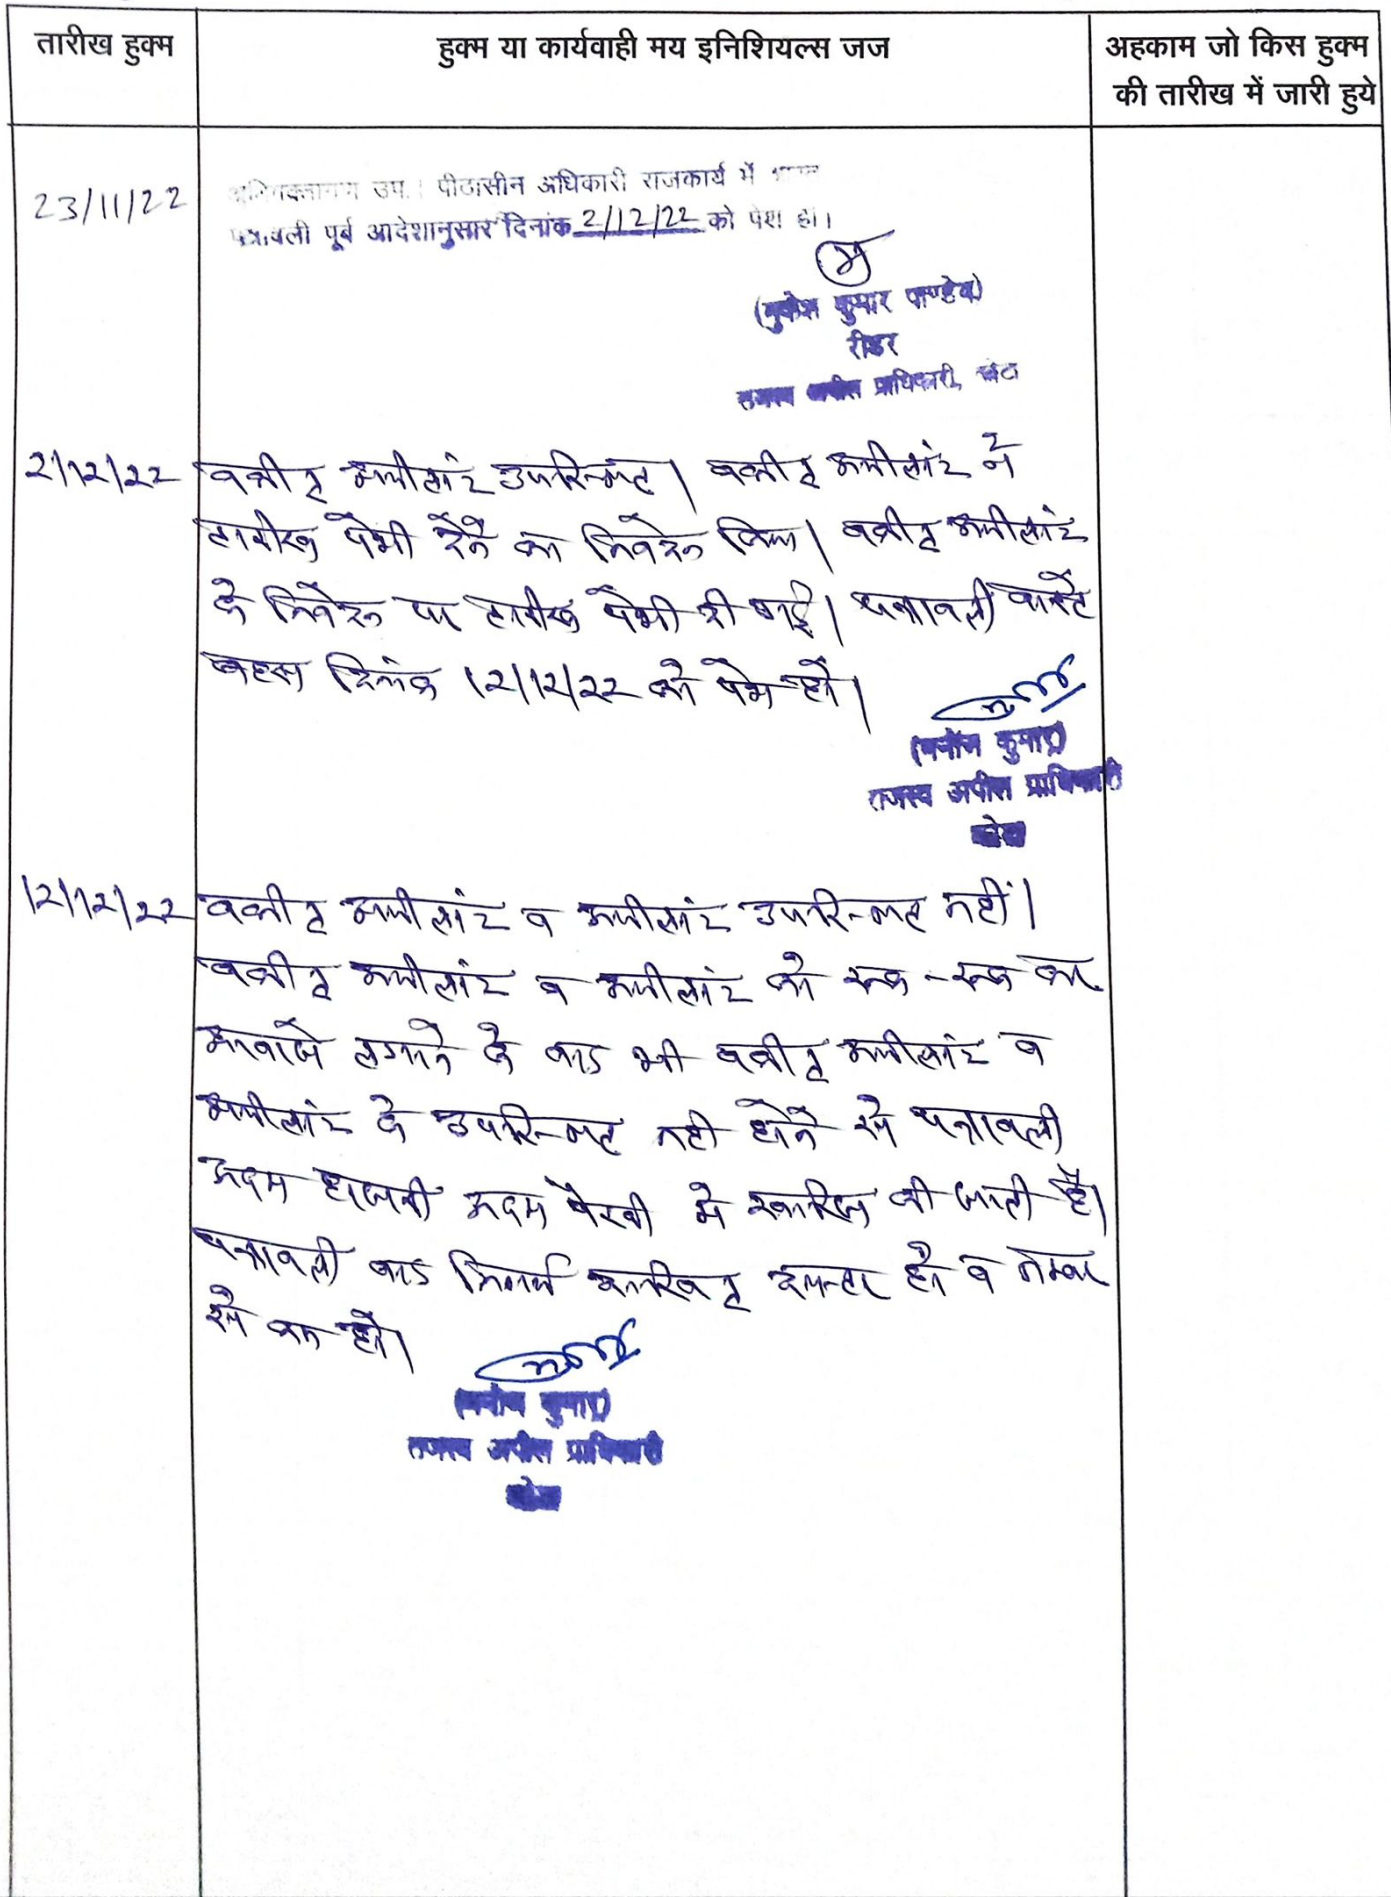 तारीख हुक्म
हुक्म या कार्यवाही मय इनिशियल्स जज
अहकाम जो किस हुक्म
की तारीख में जारी हुये
23/11/22
अभिभाषकगण उप.। पीठासीन अधिकारी राजकार्य में
पत्रावली पूर्व आदेशानुसार दिनांक 2/12/22 को पेश हो।
(मुकेश कुमार पाण्डेय)
रीडर
राजस्व अपील प्राधिकारी, कोटा
2/12/22
वकील अपीलांट उपस्थित। वकील अपीलांट ने
तारीख पेशी देने का निवेदन किया। वकील अपीलांट
के निवेदन पर तारीख पेशी दी गई। पत्रावली वास्ते
बहस दिनांक 12/12/22 को पेश हो।
(मनोज कुमार)
राजस्व अपील प्राधिकारी
कोटा
12/12/22
वकील अपीलांट व अपीलांट उपस्थित नहीं।
वकील अपीलांट व अपीलांट को रूक-रूक कर
आवाजे लगाने के बाद भी वकील अपीलांट व
अपीलांट के उपस्थित नही होने से पत्रावली
अदम हाजरी अदम पैरवी में खारिज की जाती है।
पत्रावली बाद निर्णय दाखिल दफ्तर हो व नम्बर
से कम हो।
(मनोज कुमार)
राजस्व अपील प्राधिकारी
कोटा